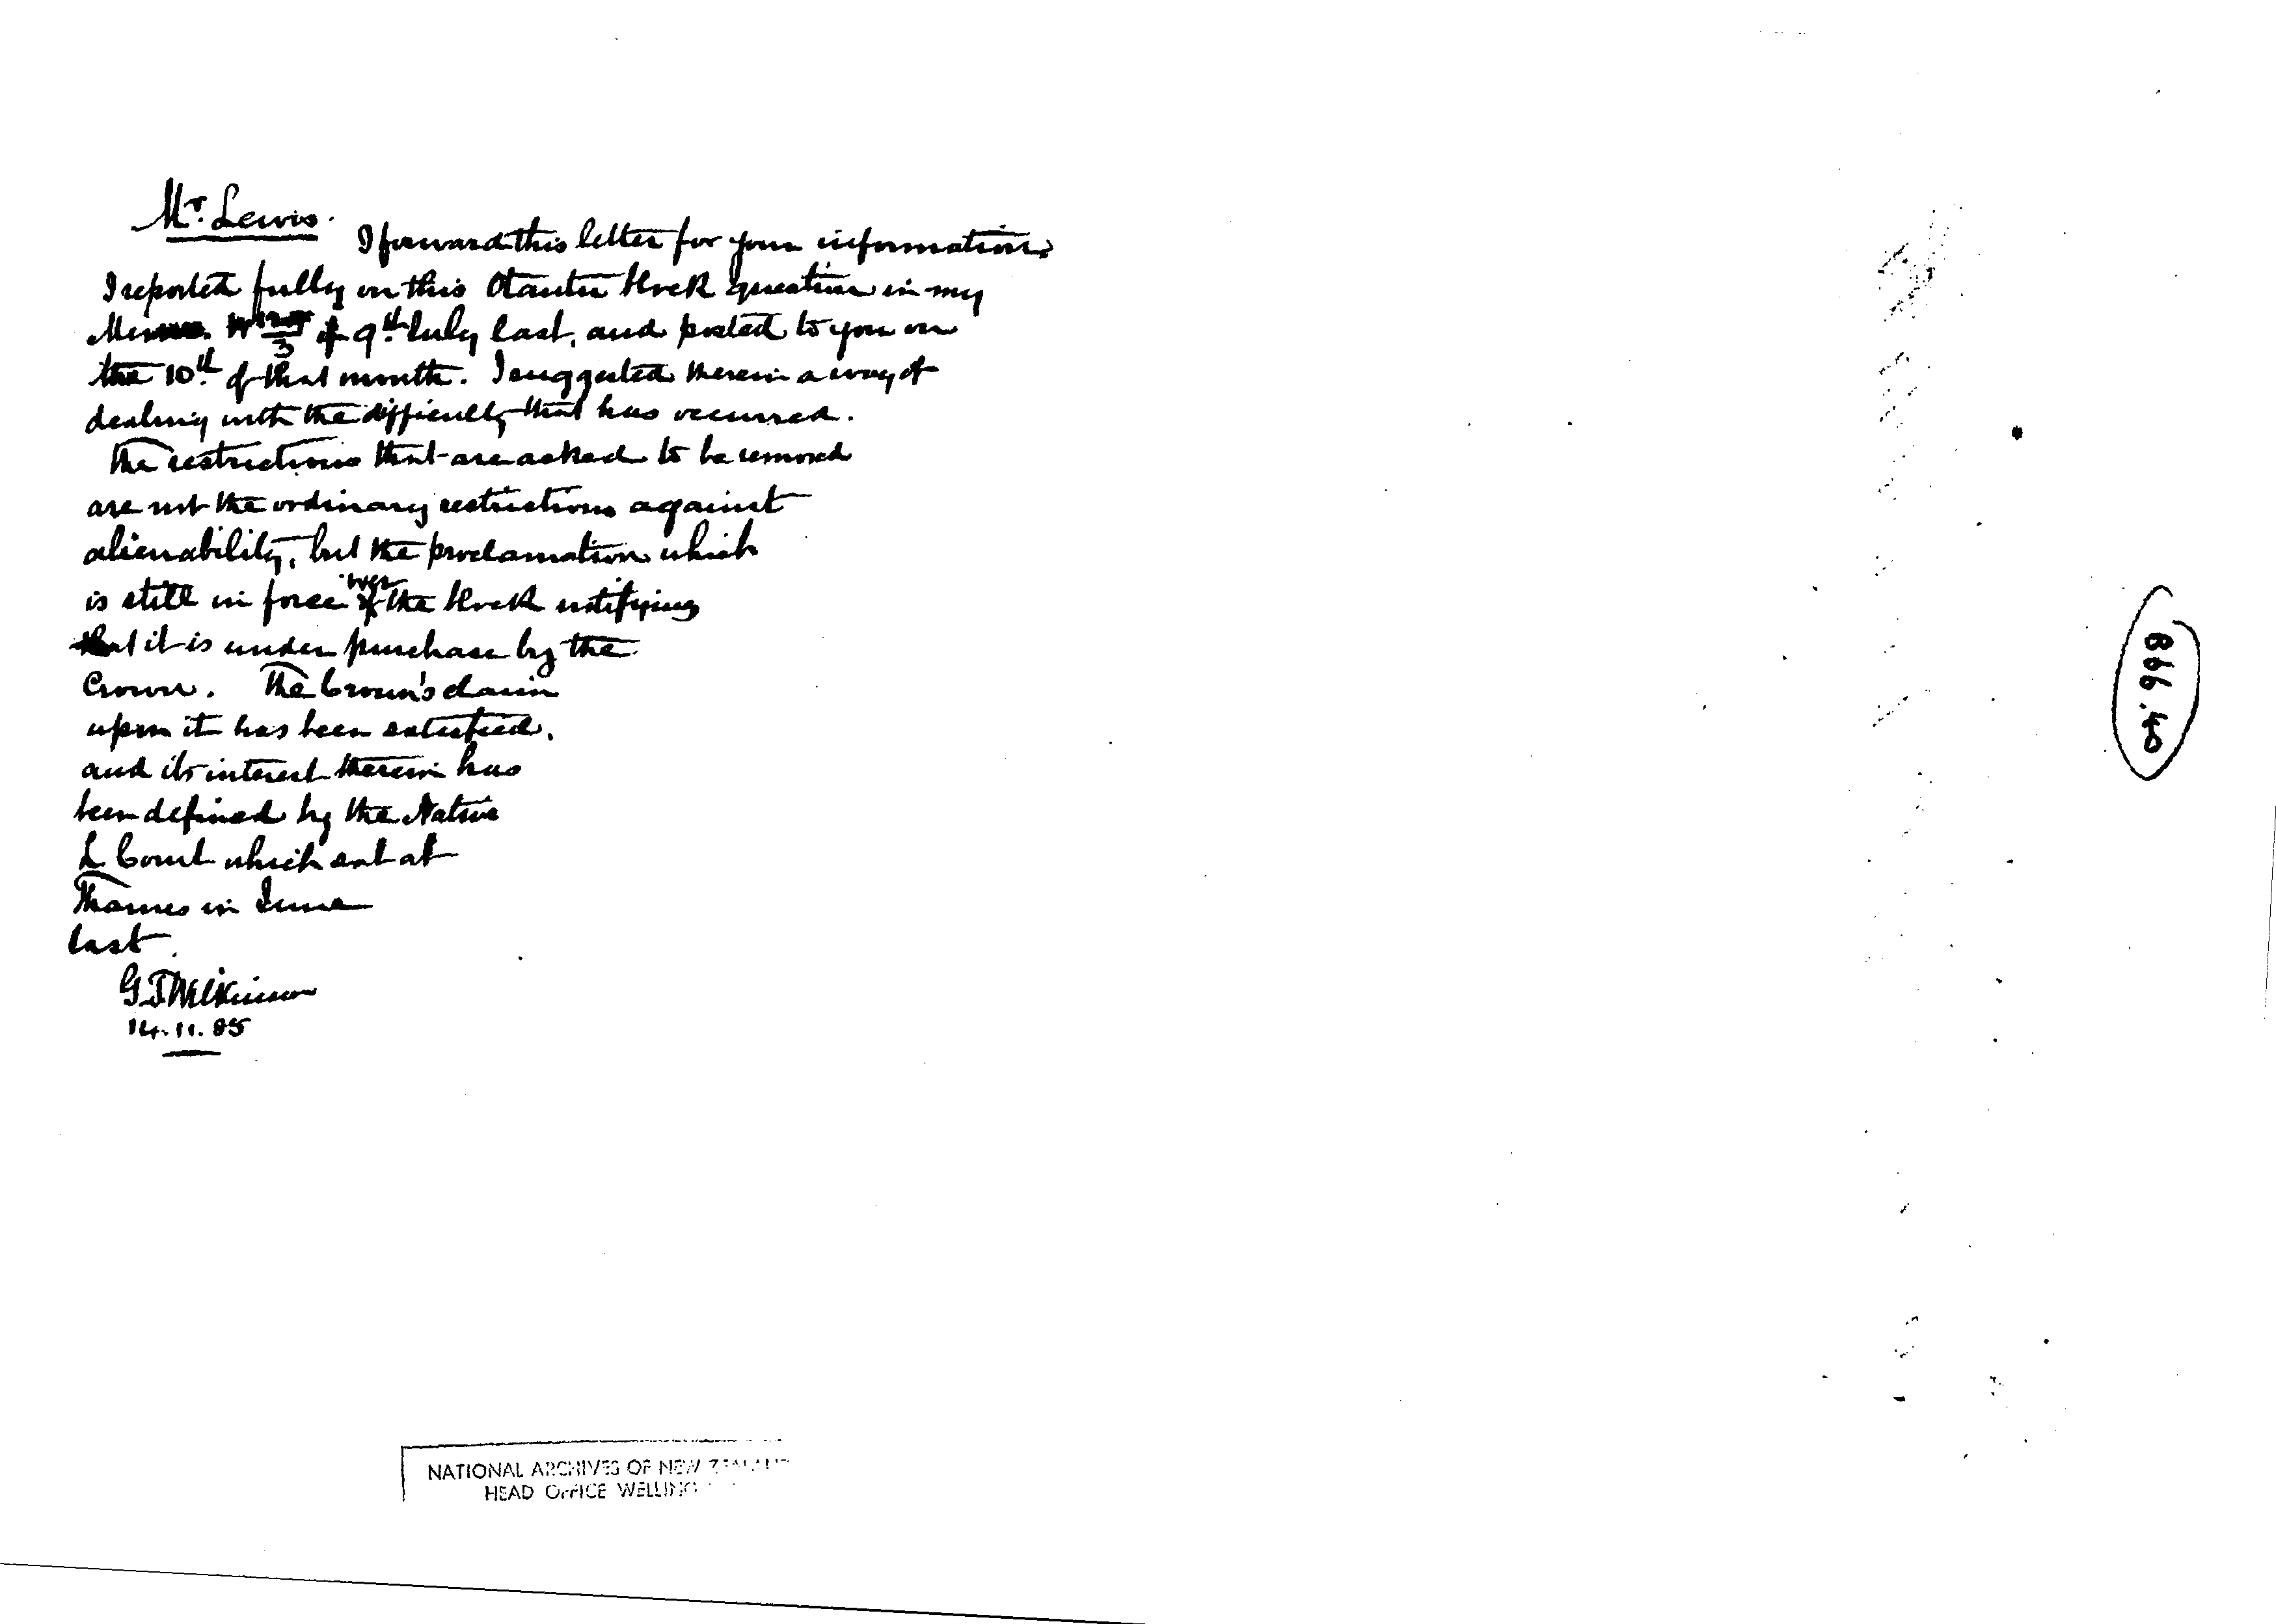 Mr. Lewis.
I forward this letter for your information.
I reported fully on this Otautu block question in my
Memo. of 9th. July last, and posted to you on
the 10th. of that month. I suggested therein a way of
dealing with the difficulty that has occurred.
The restrictions that are asked to be removed
are not the ordinary restrictions against
alienability, but the proclamation which
is still in force over the block notifying
that it is under purchase by the
Crown. The Crown's claim
upon it has been satisfied,
and its interest therein has
been defined by the Native
L Court which sat at
Thames in June
last.
G. T. Wilkinson
14.11.85
866.40
NATIONAL ARCHIVES OF NEW ZEALAND
HEAD OFFICE WELLING